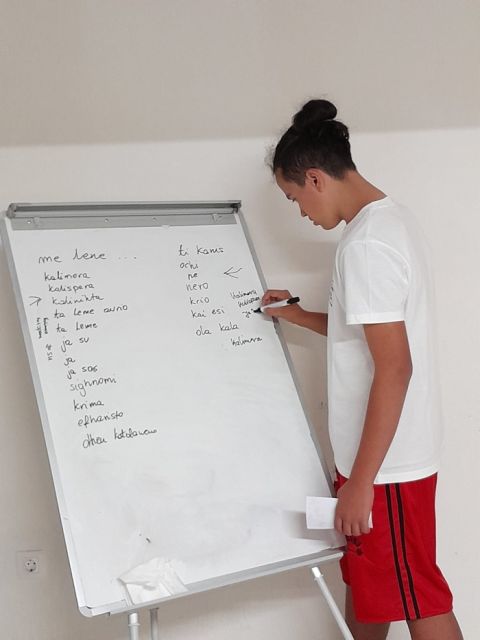 me lene ...
kalimera
kalispera
kalinihta
ta leme avrio
ta leme
ja su
ja
ja sas
sighnomi
krima
efharisto
dhen katalaveno
ti kanis
ochi
ne
nero
krio
kai esi
ola kala
kalimera
Kalimera